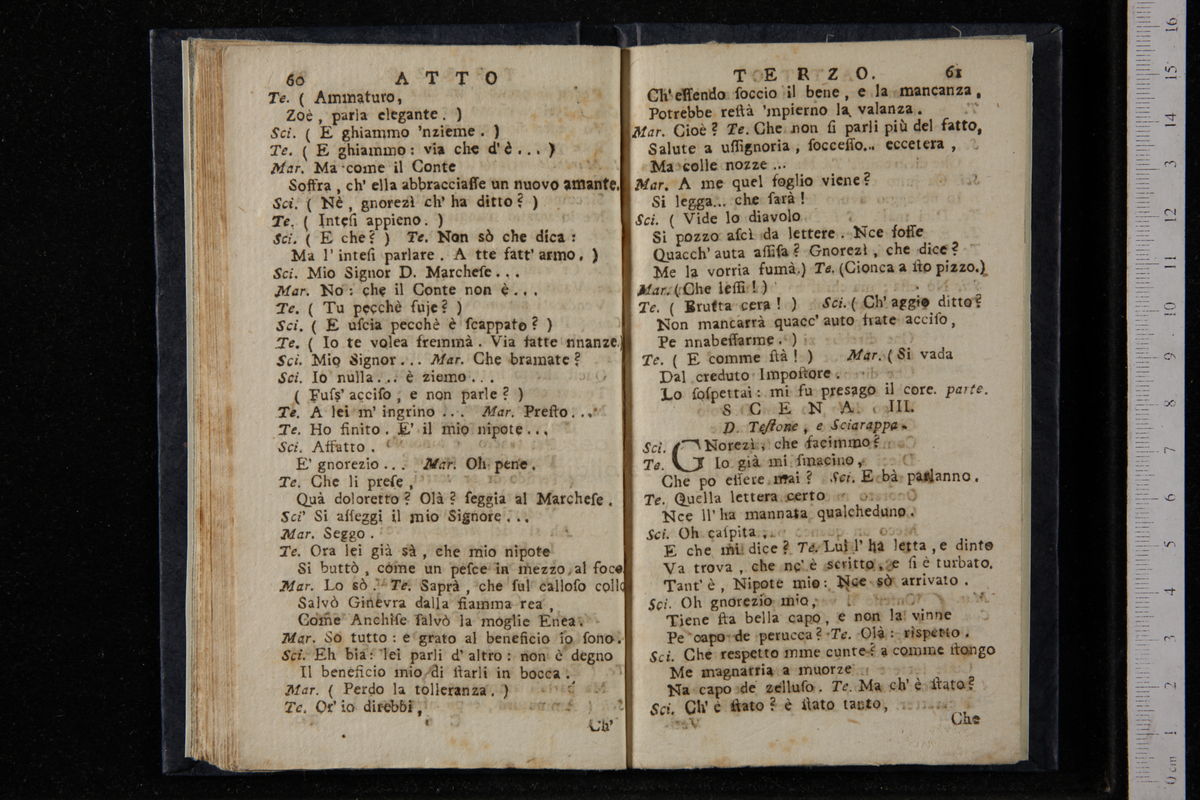 60 ATTO
Te. ( Ammaturo,
Zoè, parla elegante. )
Sci. ( E ghiammo 'nzieme. )
Te. ( E ghiammo: via che d'è... )
Mar. Ma come il Conte
Soffra, ch' ella abbracciaſſe un nuovo amante.
Sci. ( Nè, gnorezì ch' ha ditto? )
Te. ( Inteſi appieno. )
Sci. ( E che? ) Te. Non sò che dica:
Ma l' inteſi parlare. A tte fatt' armo. )
Sci. Mio Signor D. Marcheſe...
Mar. No: che il Conte non è...
Te. ( Tu pecchè fuje? )
Sci. ( E uſcia pecchè è ſcappato? )
Te. ( Io te volea fremmà. Via fatte nnanze.)
Sci. Mio Signor... Mar. Che bramate?
Sci. Io nulla... è ziemo...
( Fuſs' acciſo, e non parle? )
Te. A lei m' ingrino... Mar. Preſto...
Te. Ho finito. E' il mio nipote...
Sci. Affatto.
E' gnorezio... Mar. Oh pene.
Te. Che li preſe,
Quà doloretto? Olà? ſeggia al Marcheſe.
Sci' Si aſſeggi il mio Signore...
Mar. Seggo.
Te. Ora lei già sà, che mio nipote
Si buttò, come un peſce in mezzo al foco
Mar. Lo sò. Te. Saprà, che ſul calloſo collo
Salvò Ginevra dalla fiamma rea,
Come Anchiſe ſalvò la moglie Enea.
Mar. So tutto: e grato al beneficio io ſono.
Sci. Eh bia: lei parli d' altro: non è degno
Il beneficio mio di ſtarli in bocca.
Mar. ( Perdo la tolleranza. )
Te. Or' io direbbi,
Ch'
TERZO. 61
Ch' eſſendo ſoccio il bene, e la mancanza,
Potrebbe reſtà 'mpierno la valanza.
Mar. Cioè? Te. Che non ſi parli più del fatto,
Salute a uſſignoria, ſocceſſo... eccetera,
Ma colle nozze...
Mar. A me quel foglio viene?
Si legga... che farà!
Sci. ( Vide lo diavolo
Si pozzo aſcì da lettere. Nce foſſe
Quacch' auta affiſa? Gnorezì, che dice?
Me la vorria fumà.) Te. (Cionca a ſto pizzo.)
Mar. ( Che leſſi! )
Te. ( Brutta cera! ) Sci. ( Ch' aggio ditto?
Non mancarrà quacc' auto frate acciſo,
Pe nnabeſſarme. )
Te. ( E comme ſtà! ) Mar. ( Si vada
Dal creduto Impoſtore.
Lo ſoſpettai: mi fu presago il core. parte.
SCENA III.
D. Teſtone, e Sciarappa.
Sci. GNorezì, che facimmo?
Te. Io già mi ſmacino,
Che po eſſere mai? Sci. E bà parlanno.
Te. Quella lettera certo
Nce ll' ha mannata qualcheduno.
Sci. Oh caſpita,
E che mi dice? Te. Lui l' ha letta, e dinto
Va trova, che nc' è scritto, e ſi è turbato.
Tant' è, Nipote mio: Nce sò arrivato.
Sci. Oh gnorezio mio,
Tiene ſta bella capo, e non la vinne
Pe capo de perucca? Te. Olà: riſpetto.
Sci. Che reſpetto mme cunte? a comme ſtongo
Me magnarria a muorze
Na capo de zelluſo. Te. Ma ch' è ſtato?
Sci. Ch' è ſtato? è ſtato tanto,
Che